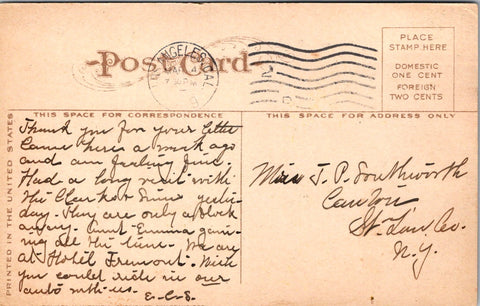 Post Card
LOS ANGELES, CAL.
PLACE
STAMP HERE
DOMESTIC
ONE CENT
FOREIGN
TWO CENTS
THIS SPACE FOR CORRESPONDENCE
THIS SPACE FOR ADDRESS ONLY
PRINTED IN THE UNITED STATES
Thank you for your letter
Came here a week ago
and am feeling fine.
Had a long visit with
the Clarks & yester-
day. They are only a block
away. Aunt Emma gain-
ing all the time. We are
at Hotel Fremont. Wish
you could ride in our
auto with us. E.C.S.
J. P. Southworth
Canton
St. Law. Co.
N.Y.